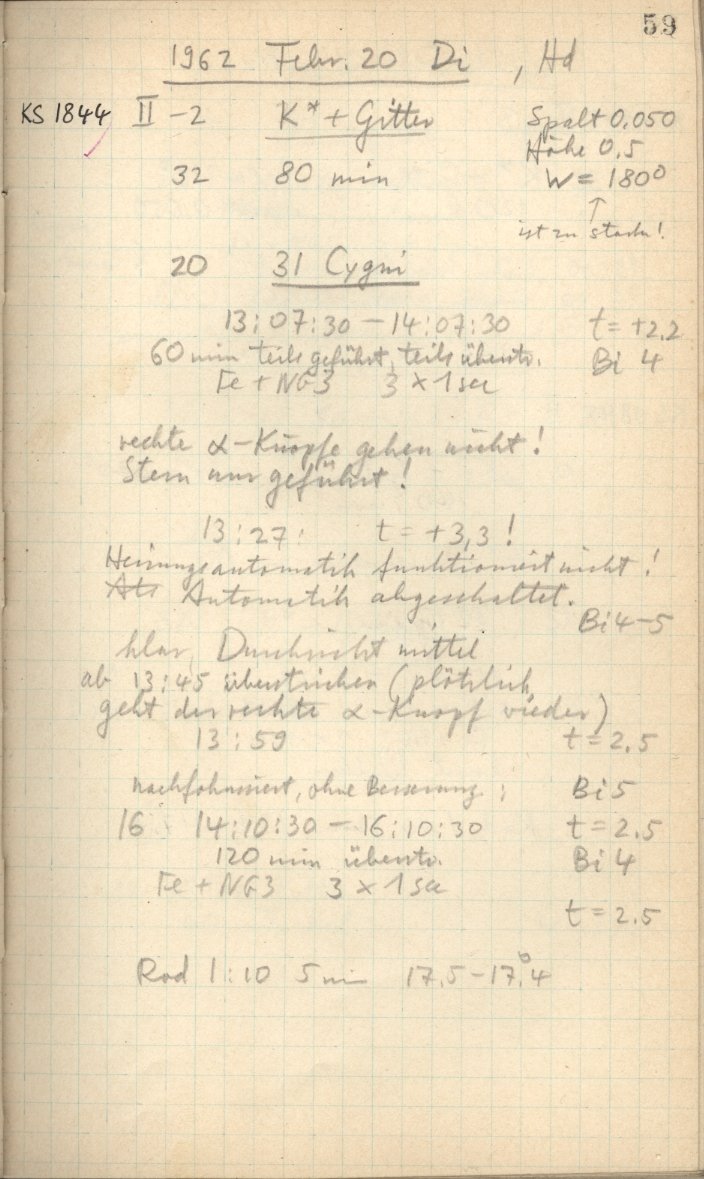 59
1962 Febr. 20 Di , Hd
KS 1844 II -2 K* + Gitter Spalt 0.050
Höhe 0.5
32 80 min W = 180°
↑
ist zu stark!
20 31 Cygni
13:07:30 — 14:07:30 t = +2.2
60 min teils geführt, teils überstr. Bi 4
Fe + NG3 3 × 1 sec
rechte α-Knöpfe gehen nicht!
Stern nur geführt!
13:27: t = +3,3!
Heizungsautomatik funktioniert nicht!
Automatik abgeschaltet.
Bi 4-5
klar, Durchsicht mittel
ab 13:45 überstrichen (plötzlich
geht der rechte α-Knopf wieder)
13:59 t = 2.5
nachfokussiert, ohne Besserung; Bi 5
16 14:10:30 — 16:10:30 t = 2.5
120 min überstr. Bi 4
Fe + NG3 3 × 1 sec
t = 2.5
Rod 1:10 5 min 17,5 - 17°,4